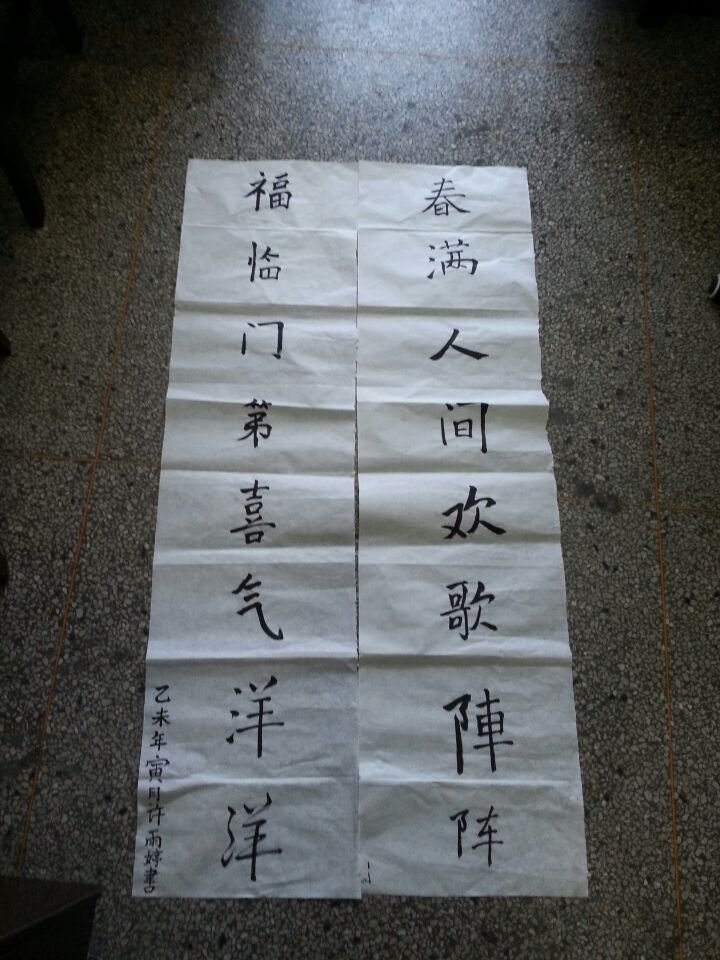 春满人间欢歌陣阵
福临门第喜气洋洋
乙未年寅月许雨婷書